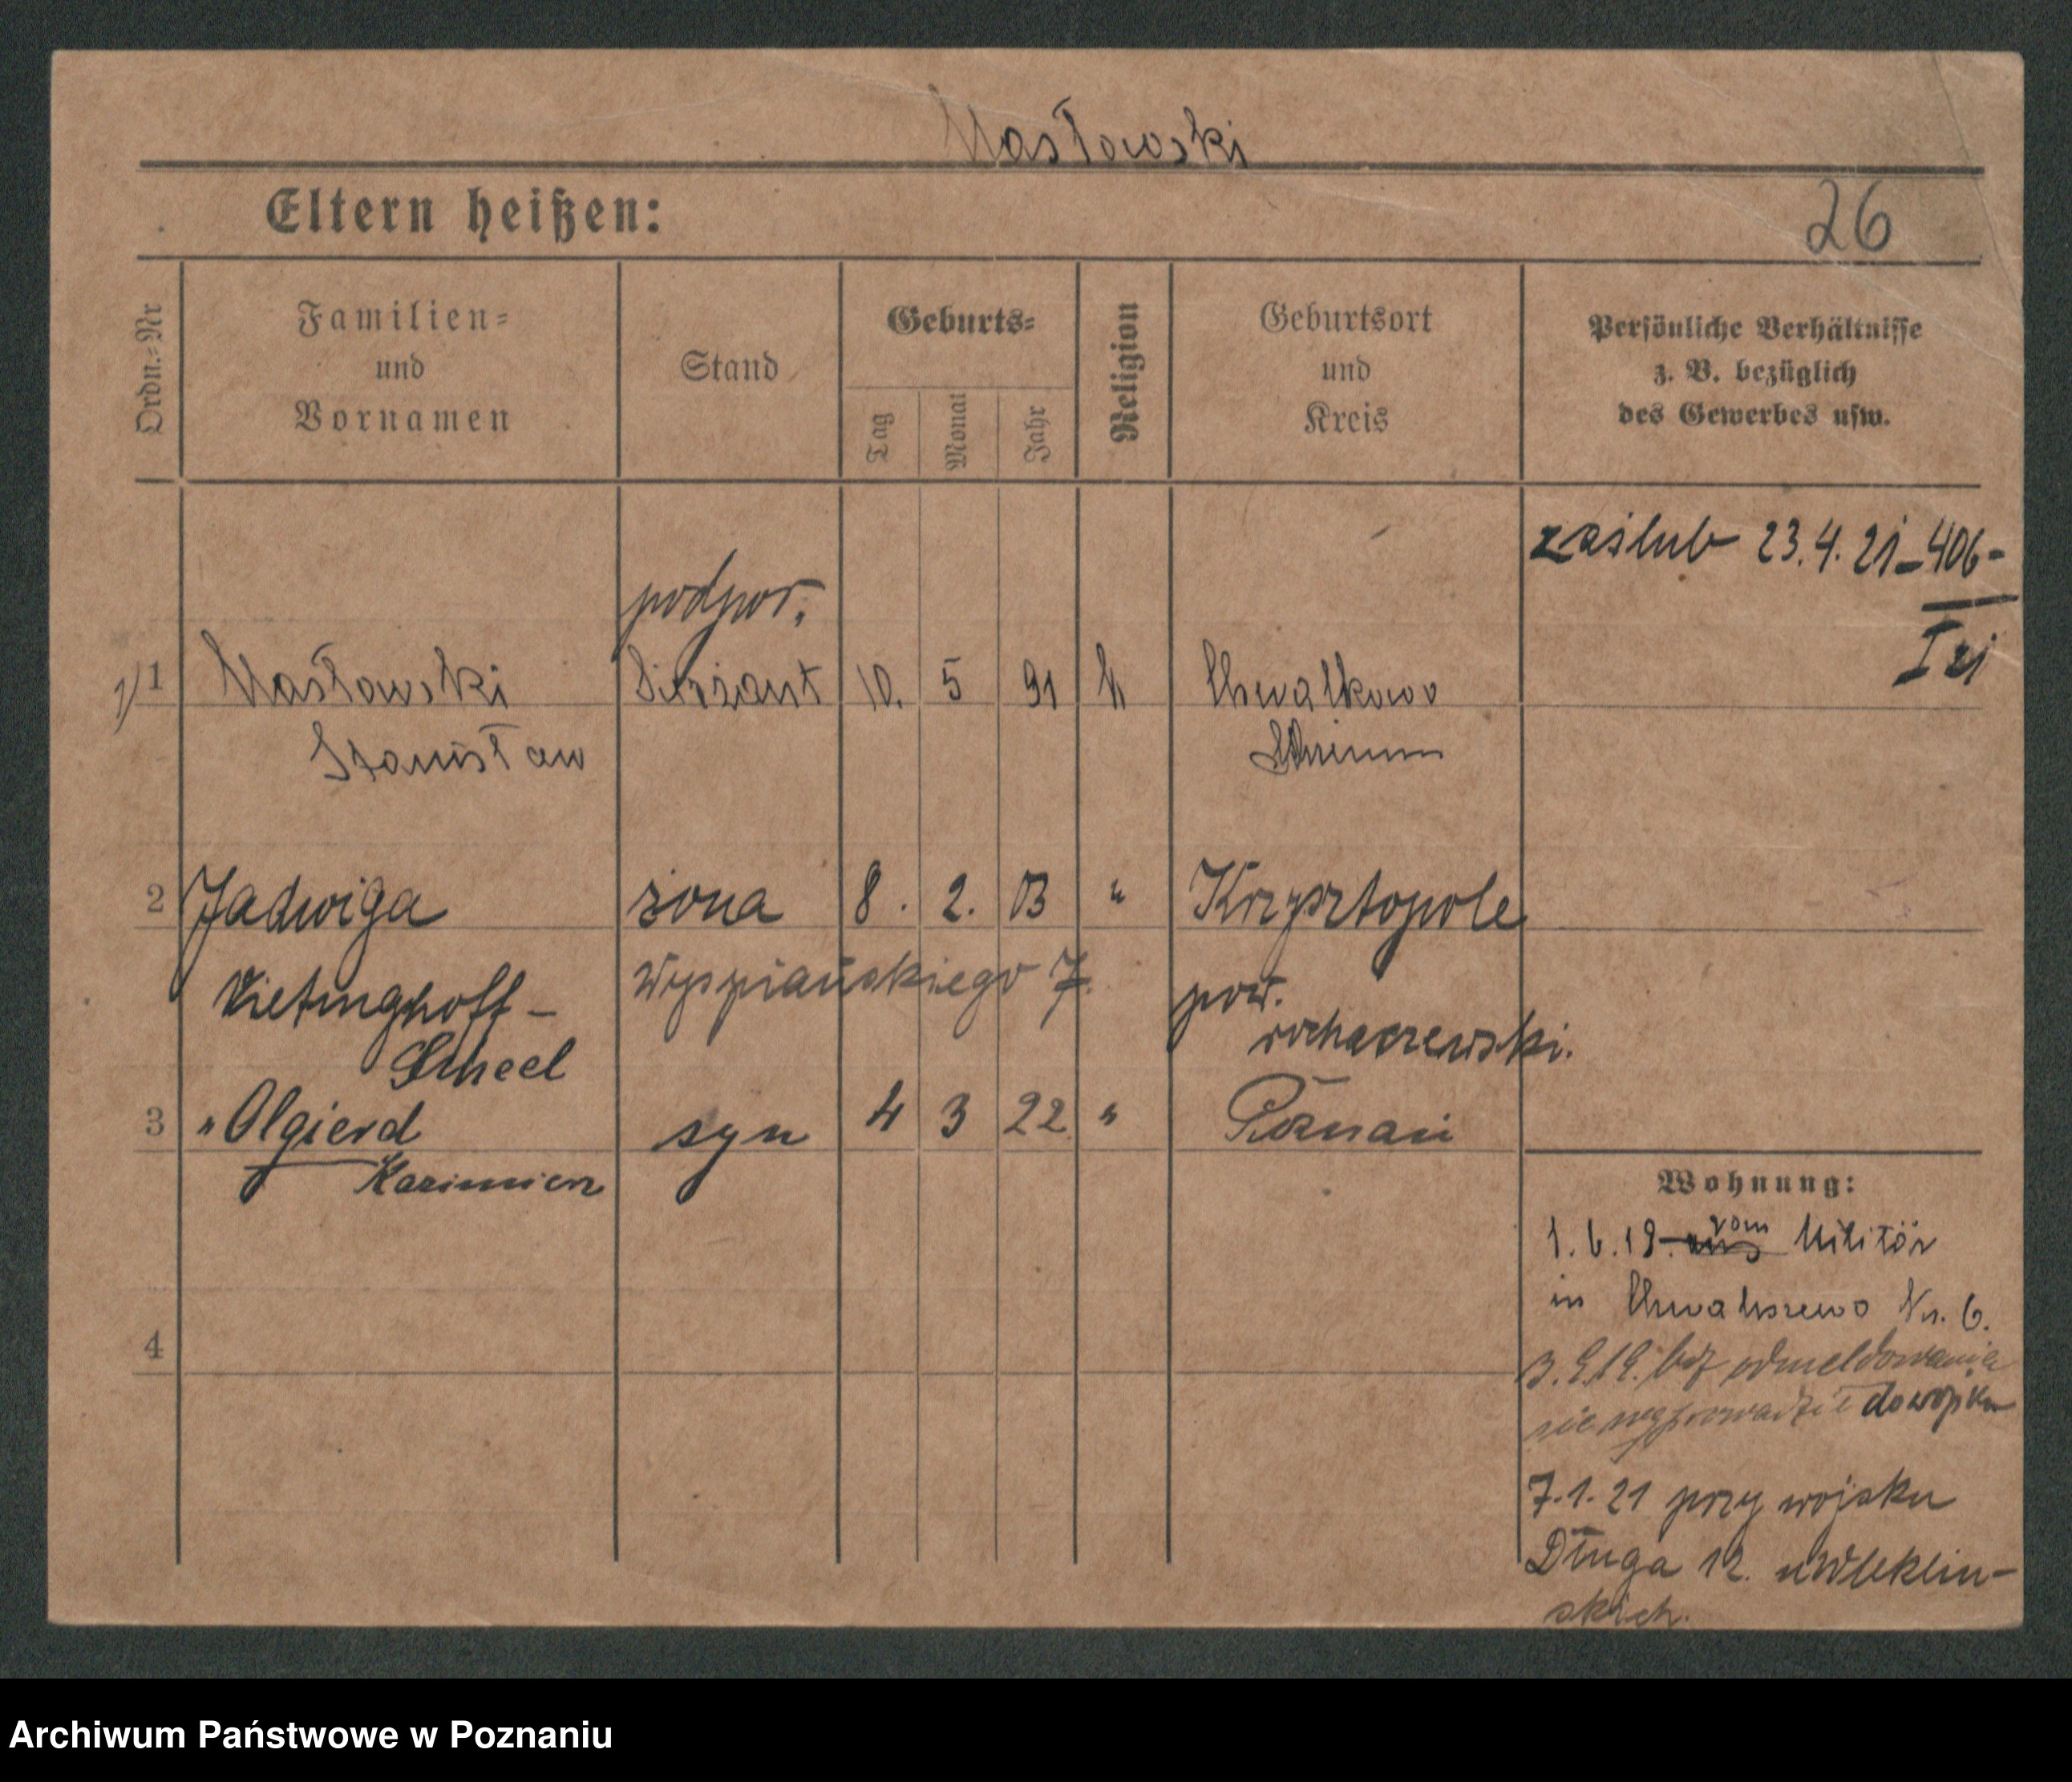 Masłowski
Eltern heißen:
26
Ordn.=Nr
Familien=
und
Vornamen
Stand
Geburts=
Tag
Monat
Jahr
Religion
Geburtsort
und
Kreis
Persönliche Verhältnisse
z. B. bezüglich
des Gewerbes usw.
zaślub 23.4.21 – 406 –
I 21
podpor.
1) 1 Masłowski Sierżant 10. 5 91 k Chwałkowo
Stanisław Schrimm
2 Jadwiga żona 8. 2. 03 " Krzysztopole
Vietinghoff – Wyspiańskiego 7. pow.
Scheel sochaczewski.
3 " Olgierd syn 4 3 22 " Poznań
Kazimierz
Wohnung:
1.6.19. aus vom Militär
in Chwaliszewo Nr. 6.
3.9.19. bez odmeldowania
się wyprowadził do wojska
4
7.1.21 przy wojsku
Długa 12. u
skich.
Archiwum Państwowe w Poznaniu